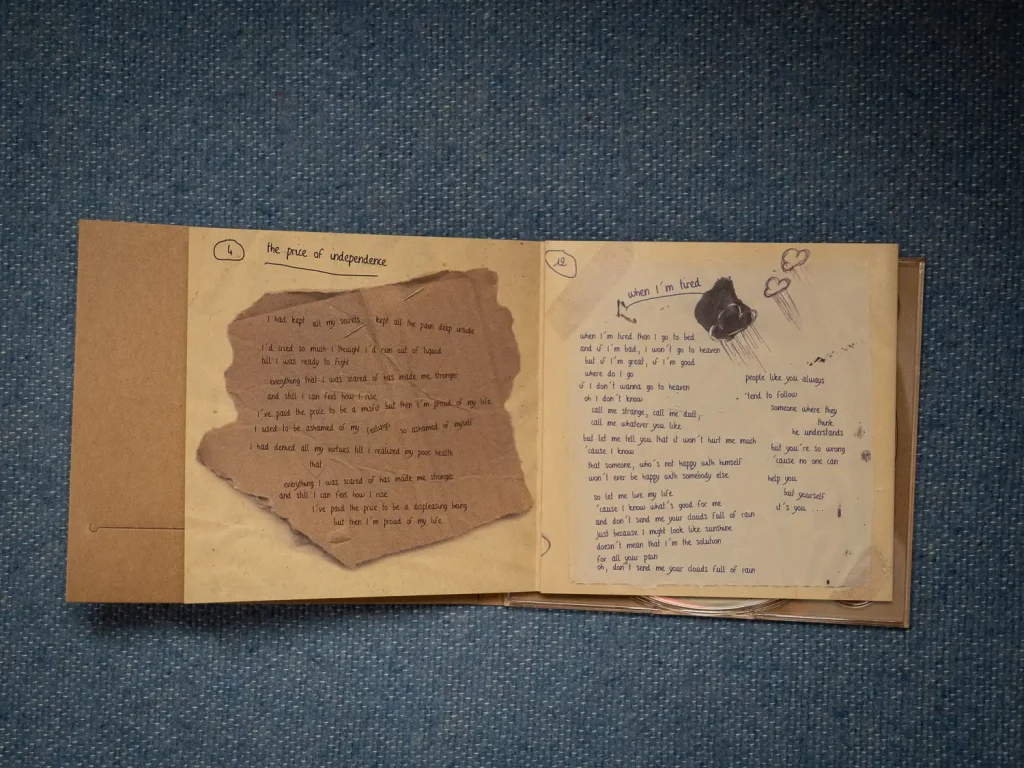 4
the price of independence
I had kept all my secrets kept all the pain deep inside
I'd cried so much I thought I'd run out of liquid
till I was ready to fight
everything that I was scared of has made me stronger
and still I can feel how I rise
I've paid the price to be a misfit but then I'm proud of my life
I used to be ashamed of my (feelings) so ashamed of myself
I had denied all my virtues till I realized my poor health
that
everything I was scared of has made me stronger
and still I can feel how I rise
I've paid the price to be a displeasing being
but then I'm proud of my life
12
when I'm tired
when I'm tired then I go to bed
and if I'm bad, I won't go to heaven
but if I'm great, if I'm good
where do I go
if I don't wanna go to heaven
oh I don't know
call me strange, call me dull,
call me whatever you like
but let me tell you that it won't hurt me much
'cause I know
that someone, who's not happy with himself
won't ever be happy with somebody else
so let me live my life
'cause I know what's good for me
and don't send me your clouds full of rain
just because I might look like sunshine
doesn't mean that I'm the solution
for all your pain
oh, don't send me your clouds full of rain
people like you always
tend to follow
someone where they
think
he understands
but you're so wrong
'cause no one can
help you
but yourself
it's you....